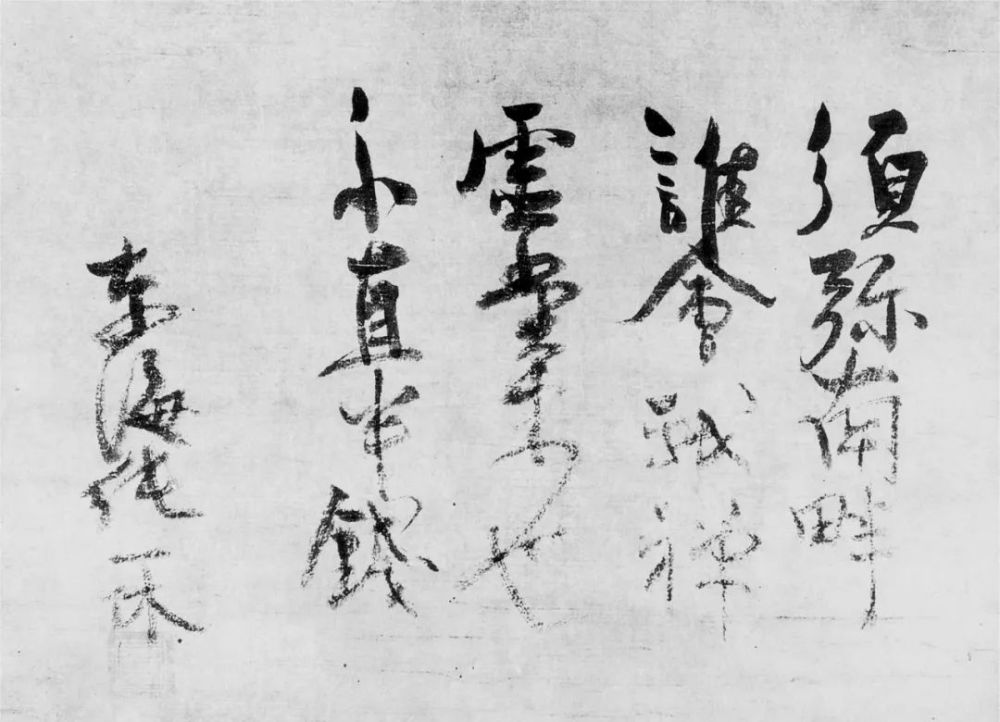 須弥南畔
誰會我禅
虚堂来也
不直半銭
東海純一休